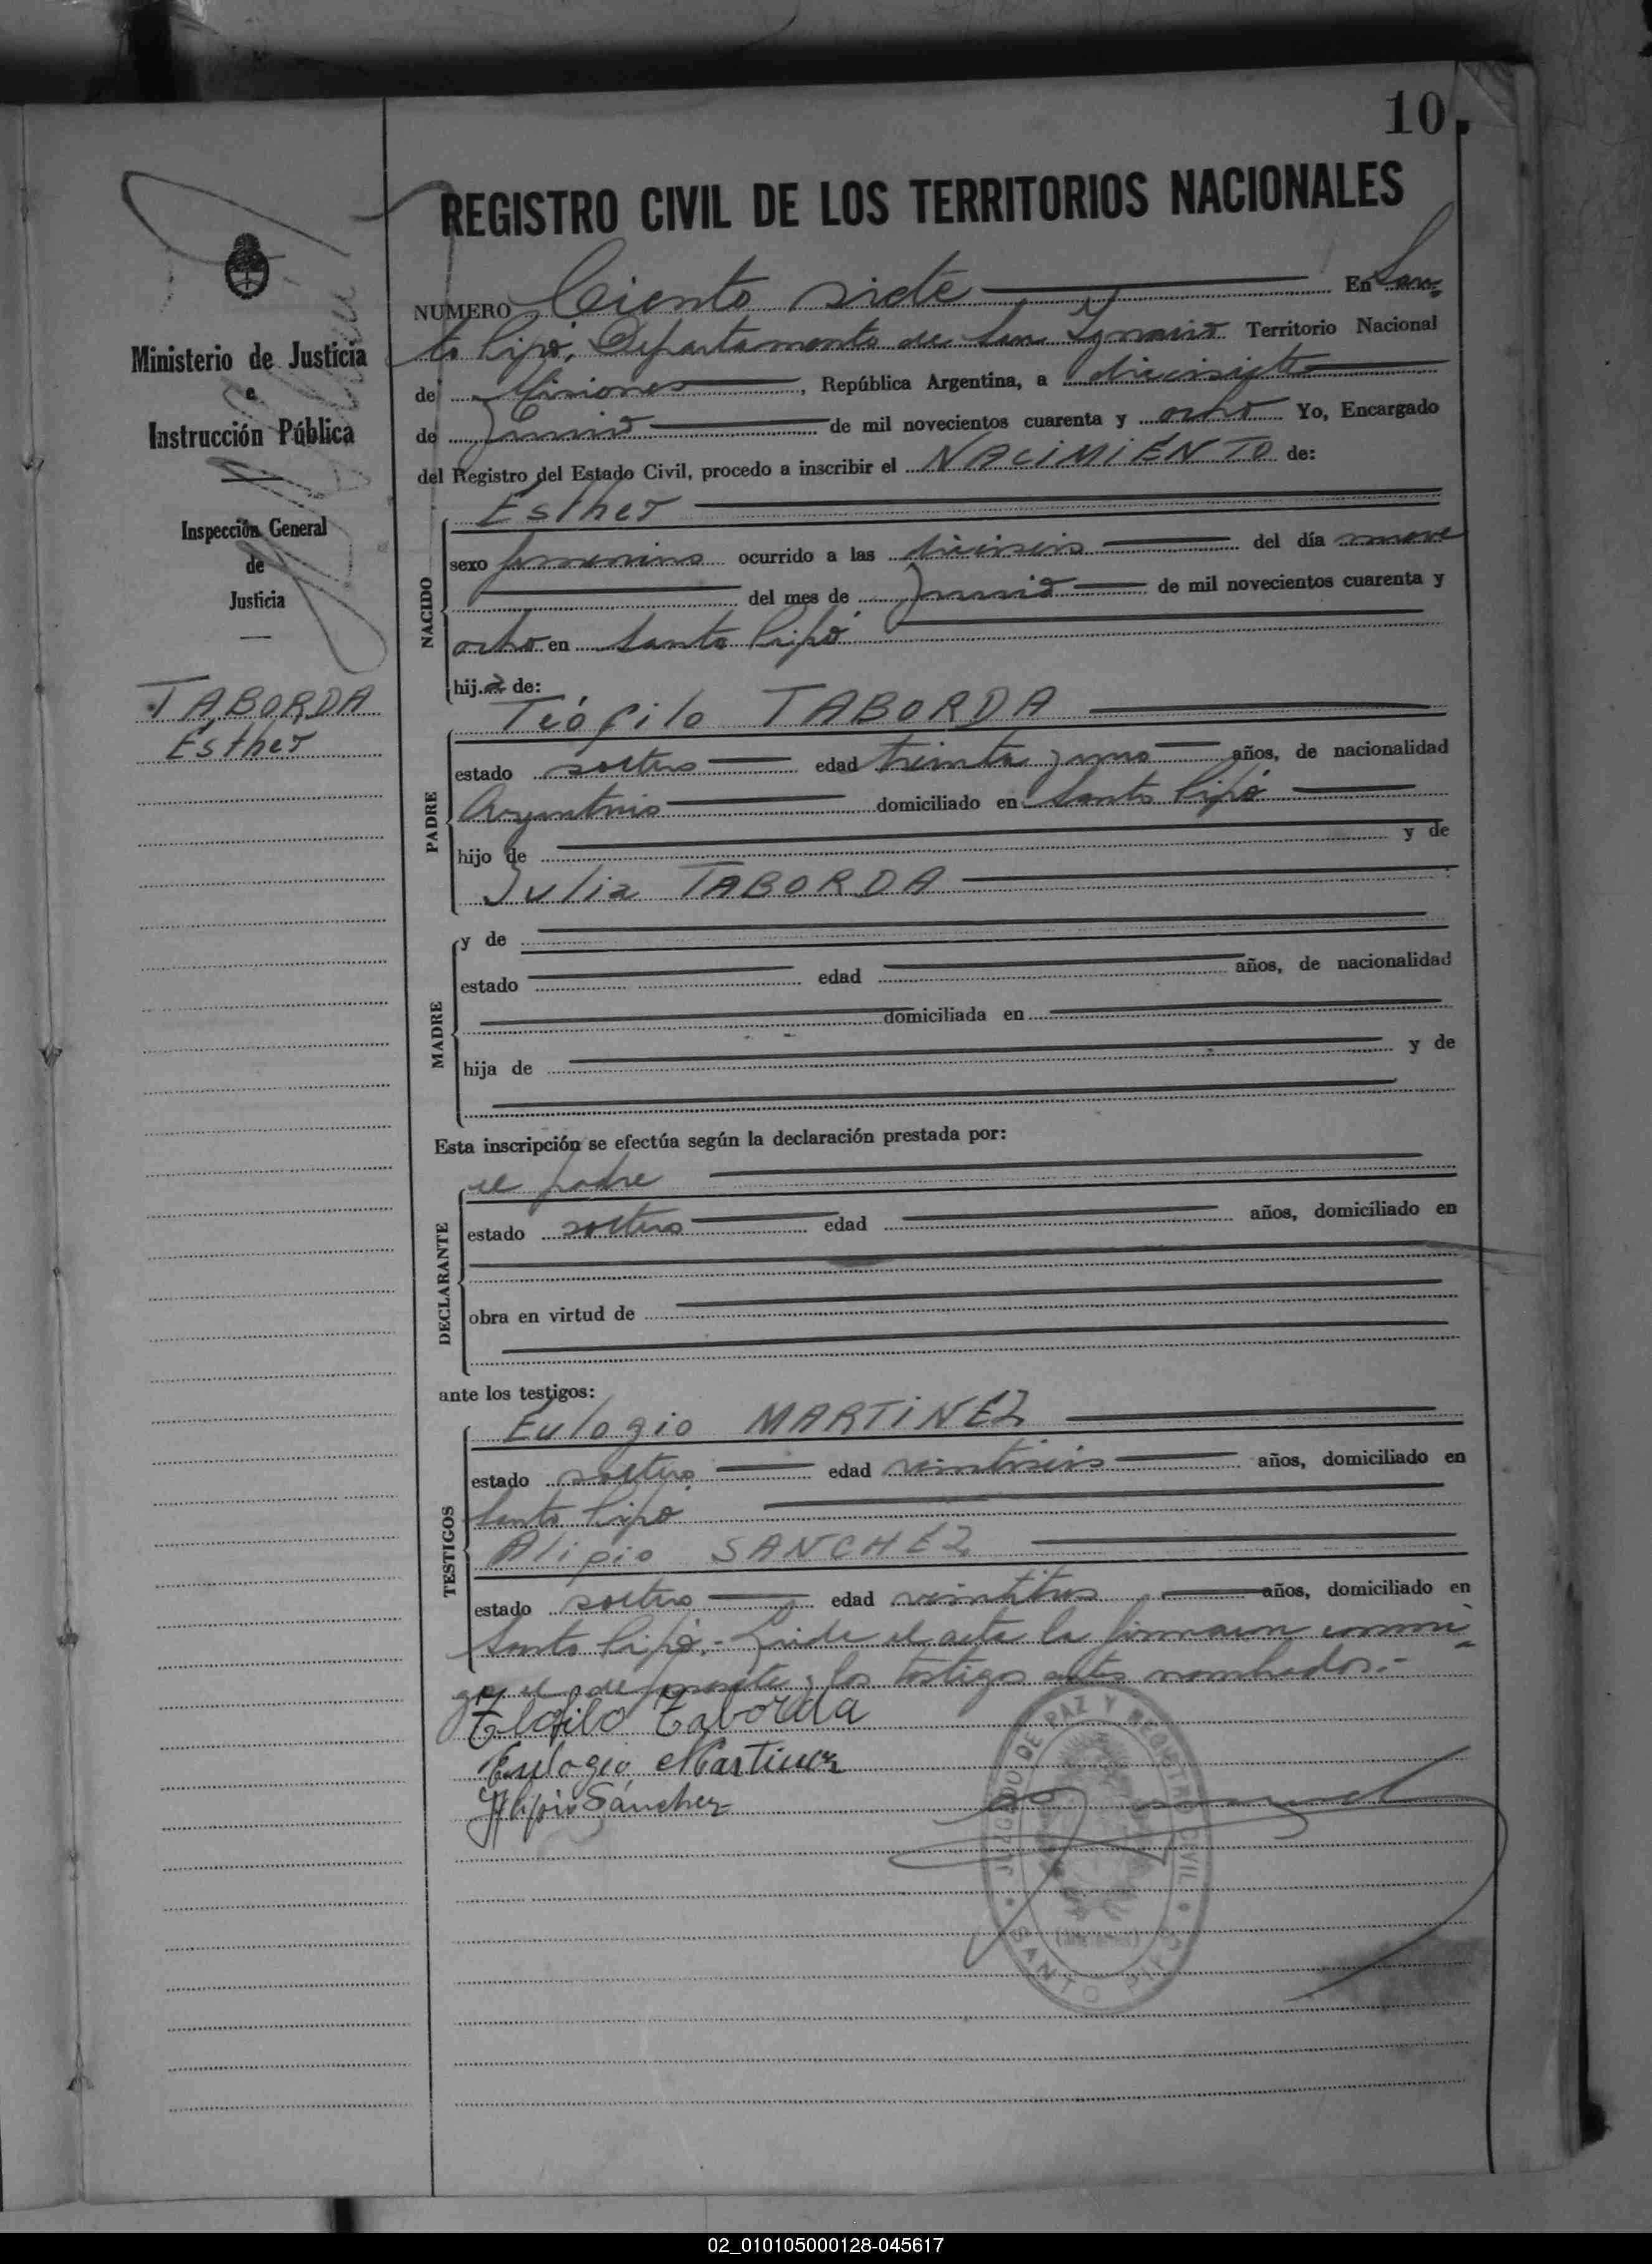 10.
REGISTRO CIVIL DE LOS TERRITORIOS NACIONALES
NUMERO Ciento siete En San-
to Pipó, Departamento de San Ygnacio Territorio Nacional
de Misiones, República Argentina, a diecisiete
de Junio de mil novecientos cuarenta y ocho Yo, Encargado
del Registro del Estado Civil, procedo a inscribir el NACIMIENTO de:
Ministerio de Justicia
e
Instrucción Pública
Inspección General
de
Justicia
TABORDA
Esther
NACIDO
Esther
sexo femenino ocurrido a las dieciseis del día nueve
del mes de Junio de mil novecientos cuarenta y
ocho en Santo Pipó
hija de:
PADRE
Teófilo TABORDA
estado soltero edad treinta y uno años, de nacionalidad
Argentino domiciliado en Santo Pipó
hijo de y de
Julia TABORDA
MADRE
y de
estado edad años, de nacionalidad
domiciliada en
hija de y de
Esta inscripción se efectúa según la declaración prestada por:
DECLARANTE
el padre
estado soltero edad años, domiciliado en
obra en virtud de
ante los testigos:
TESTIGOS
Eulogio MARTINEZ
estado soltero edad veintiseis años, domiciliado en
Santo Pipó
Alipio SANCHEZ
estado soltero edad veintitres años, domiciliado en
Santo Pipó.- Leida el acta la firmaron conmi-
go el de los testigos antes nombrados.-
Teofilo Taborda
Eulogio Martinez
Alipio Sánchez
JUZGADO DE PAZ Y REGISTRO CIVIL
SANTO PIPO
02_010105000128-045617